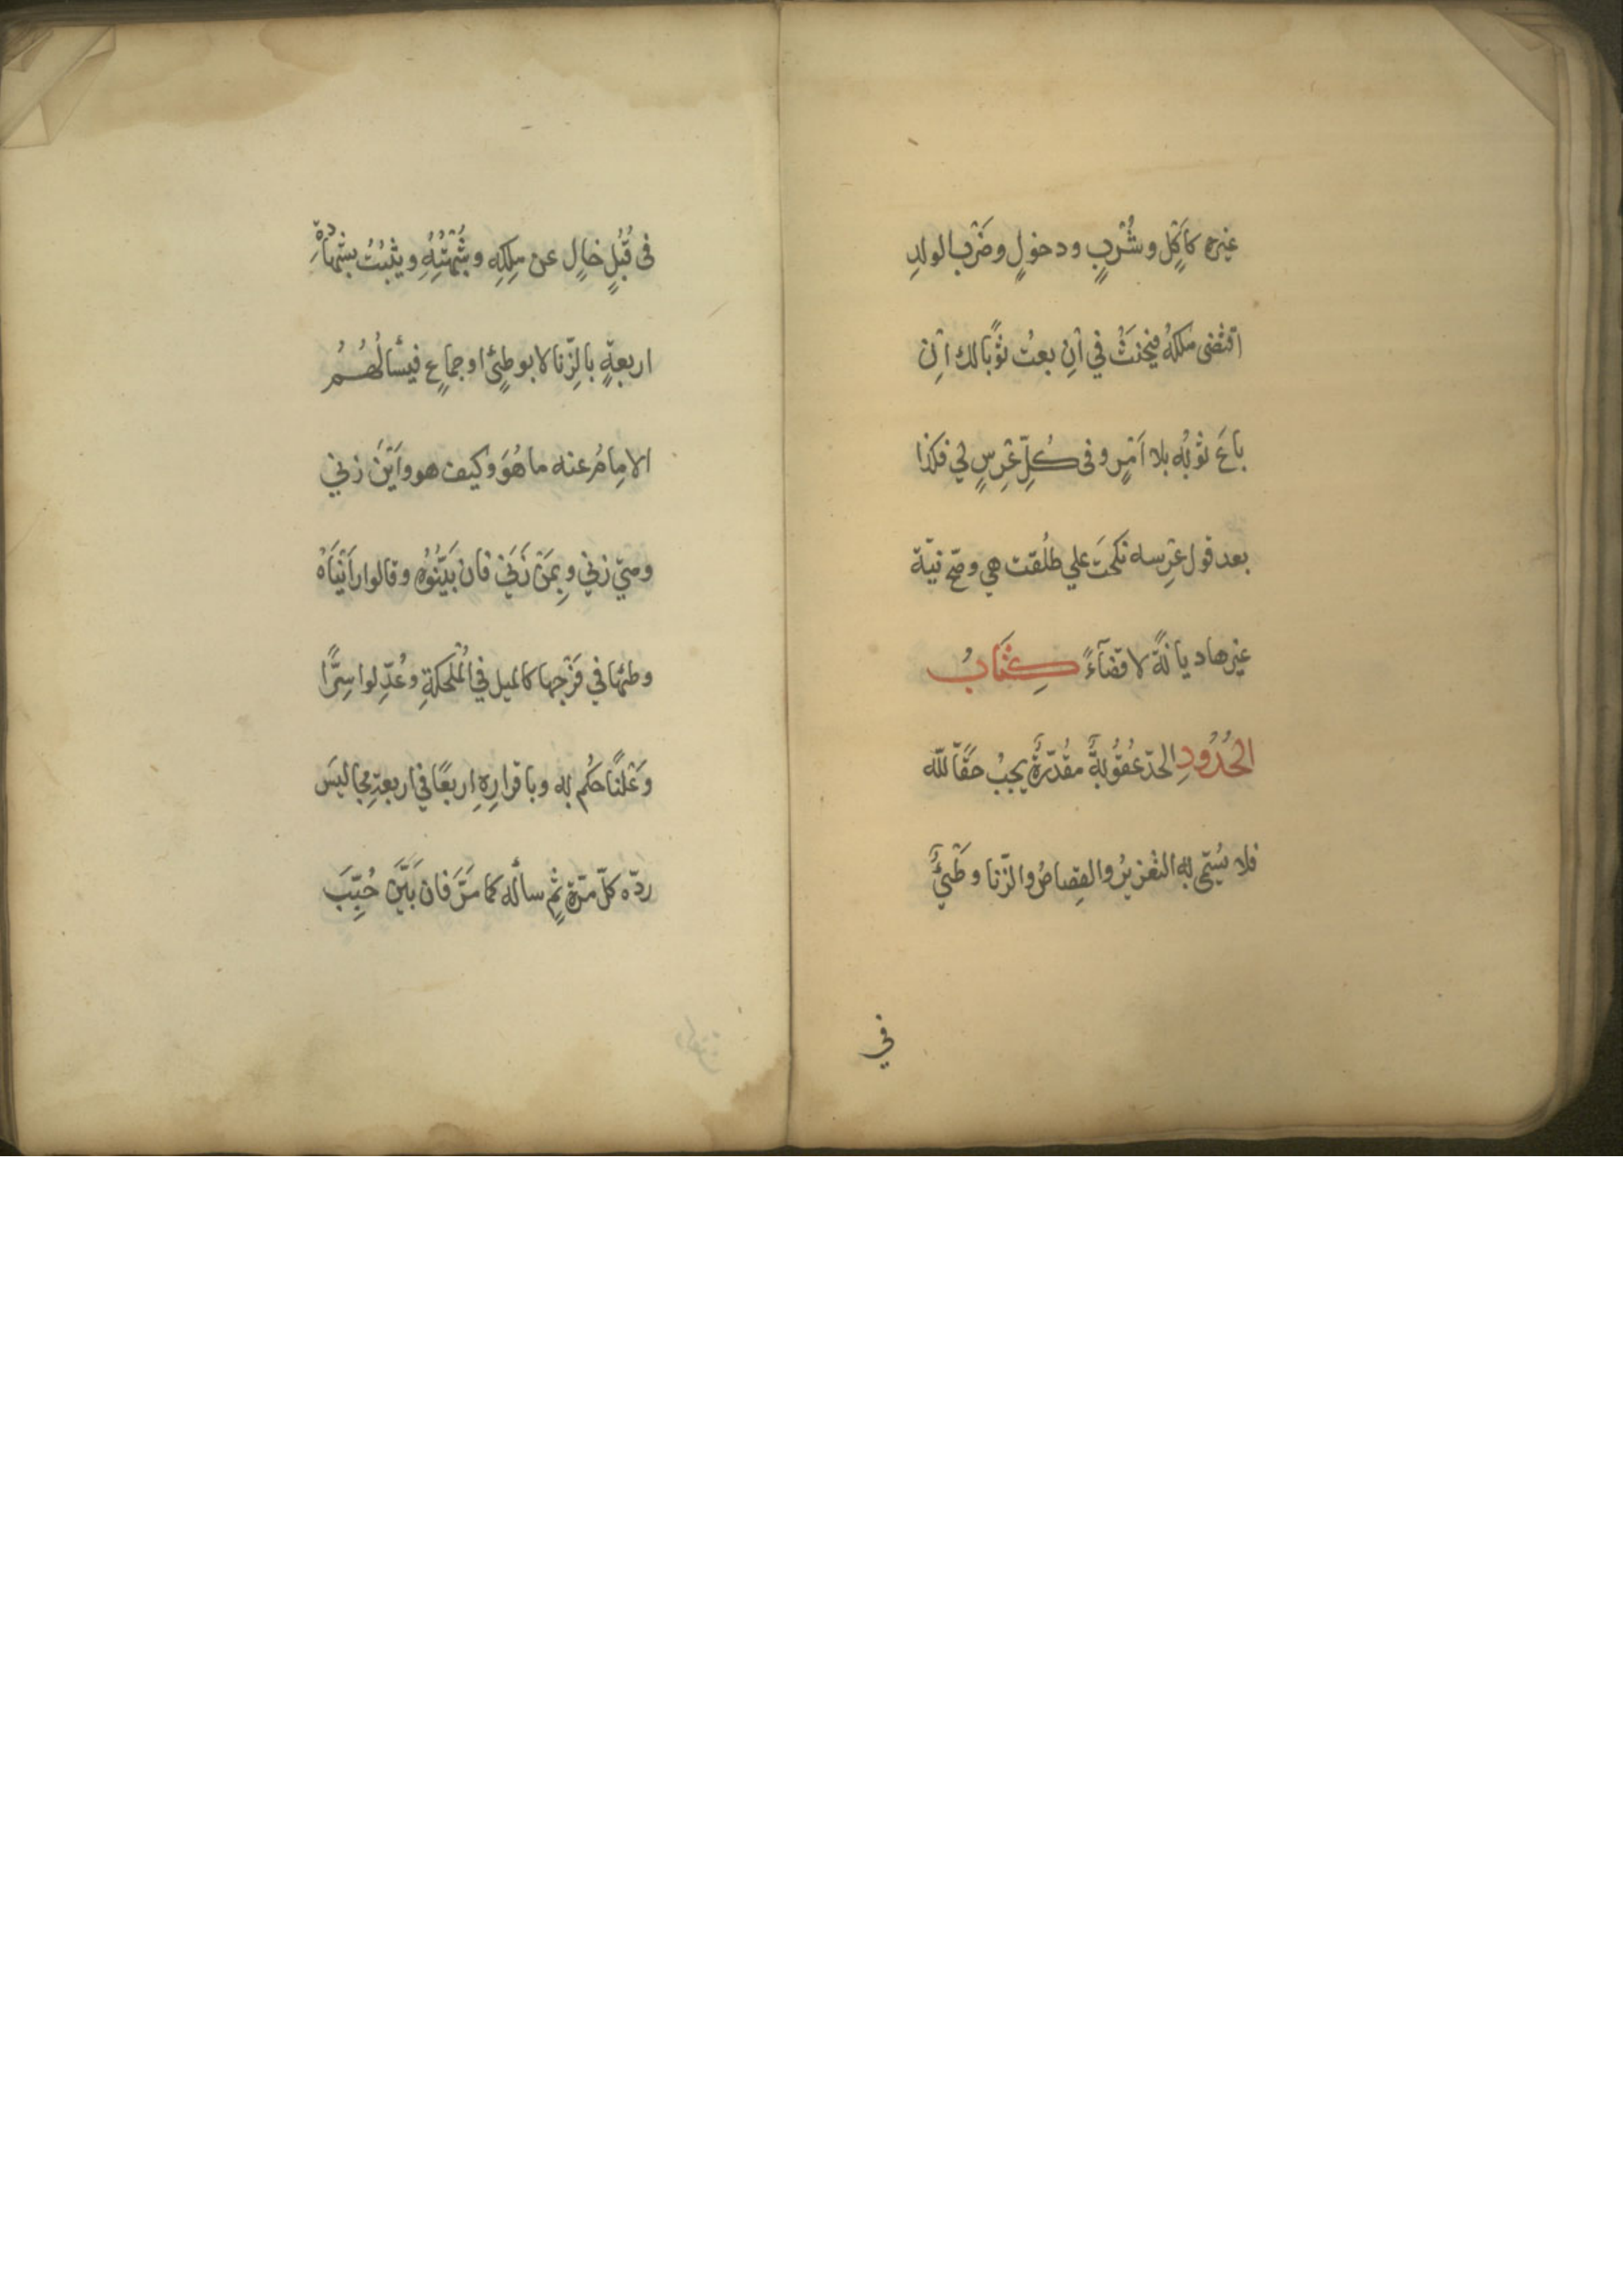 غيره كاَكْلٍ وشُرْبٍ ودخولٍ وضَرْبِ الولدِ
اقتضى مُلكَهُ فيحنَثُ في اِنْ بعتُ ثوْبًا لك اِنْ
باعَ ثوْبُه بلا اَمْرٍ وفى كُلِّ عِرْسٍ لي فكذا
بعد قول عِرْسه نكحتَ علي طُلقت هي وصحّ نيّة
غيرها ديانةً لا قضآءً كِتَابُ
الحُدُودِ الحدّ عُقُوبةٌ مقُدّرةٌ يجبُ حقًّا للّه
فلا يُسَمّى به التعزيرُ والقِصاصُ والزّنا وَطْئٌ
في
فى قُبُلٍ خالٍ عن مِلكِه وشُبْهَتِهِ ويثبُتُ بشهادَةِ
اربعةٍ بالِزّنا لا بوطئٍ اوجماعٍ فيسْاَلُهُمُ
الامِامُ عنه ما هُوَ وكيف هو واَيْنَ زني
ومتي زني وبِمَنْ زَنَي فان بَيَّنُوُه وقالوا رأيْنَاهُ
وطئها في فَرْجِها كالميل في المُكْحُلَةِ وعُدِّلوا سِرًّا
وَعْلَنًا حُكُم به وباقرارِهِ اربعًا في اربعةِ مجاليسَ
ردّه كلّ مرّة ثمّ سأله كما مَرَّ فان بَيَّنَ حُبِّبَ